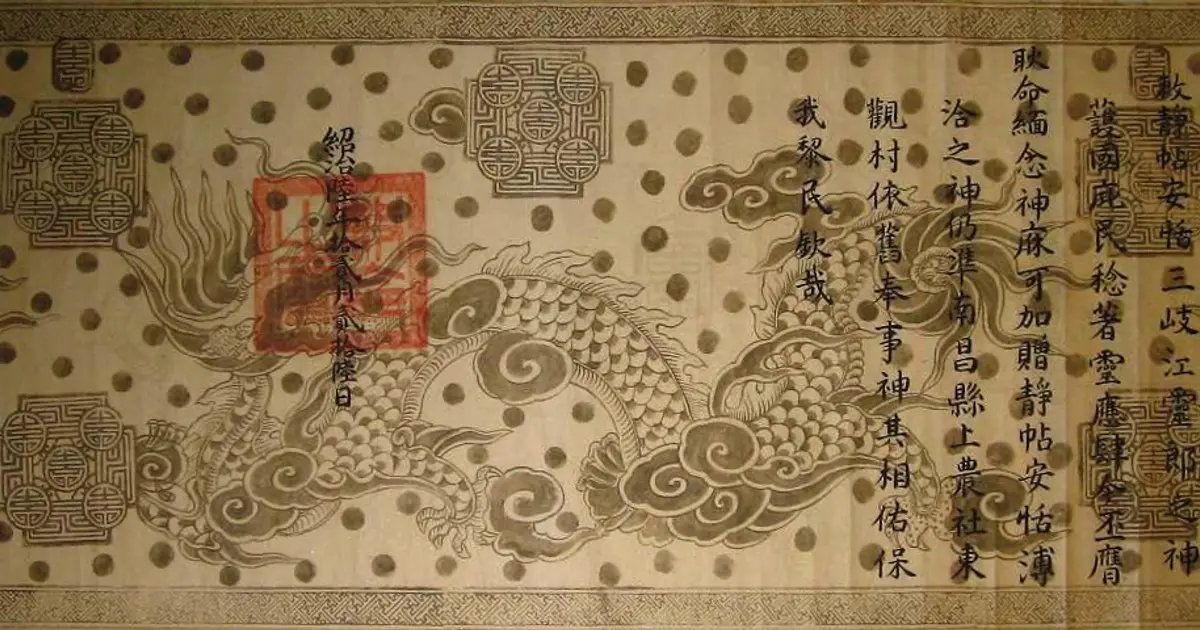 敕靜帖安恬三岐江靈郎之神
護國庇民稔著靈應肆今丕膺
耿命緬念神庥可加贈靜帖安恬溥
洽之神仍准南昌縣上農社東
觀村依舊奉事神其相佑保
我黎民欽哉
紹治陸年拾貳月貳拾陸日